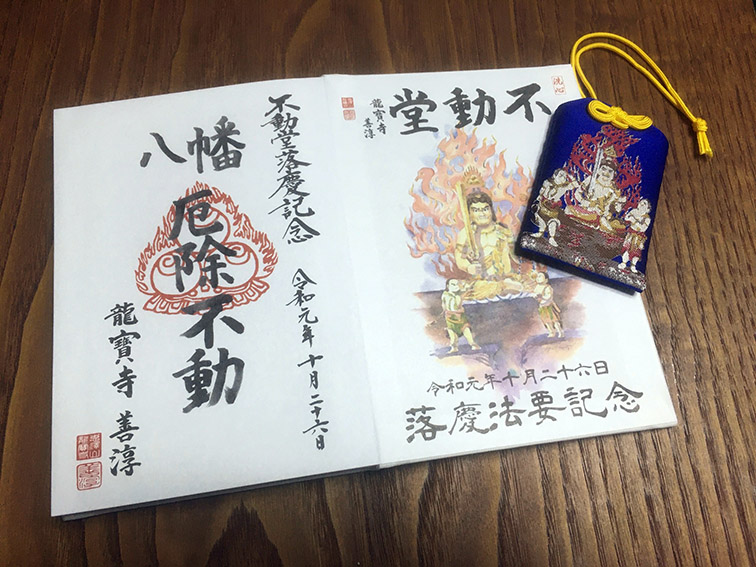 洗心
不動堂
龍寶寺
善淳
令和元年十月二十六日
落慶法要記念
不動堂落慶記念
令和元年十月二十六日
八幡
厄除不動
龍寶寺 善淳